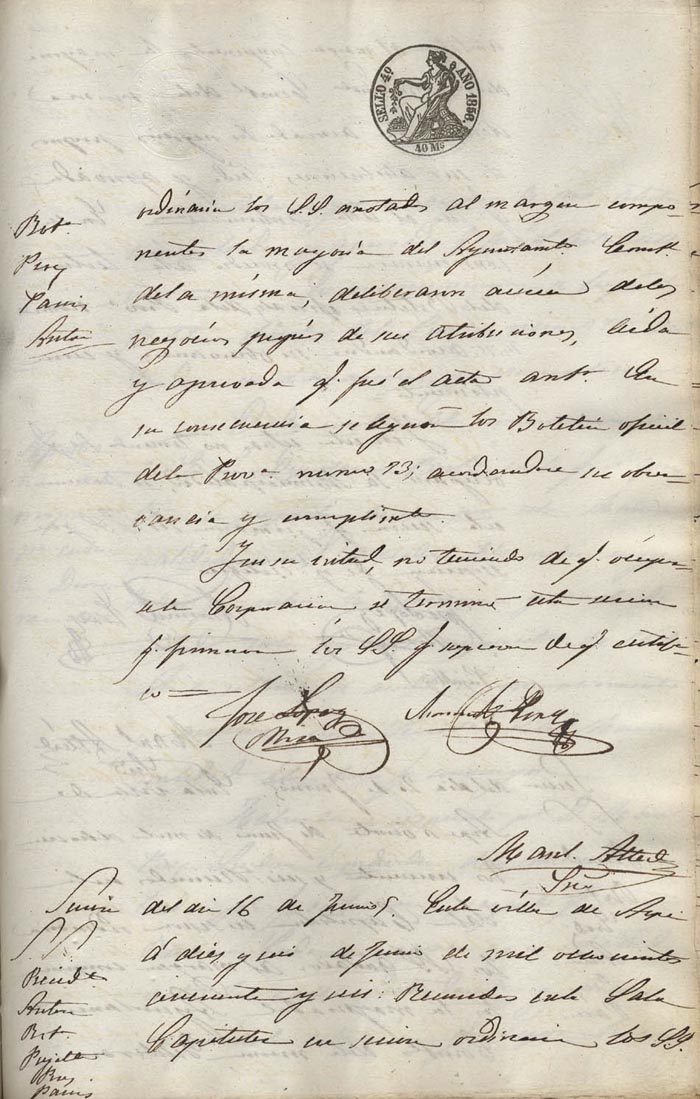 SELLO 4º AÑO 1856.
40 Ms
Bot.
Puig
Panis
Anton
ordinaria los S.S. anotados al margen compo-
nentes la mayoría del Ayuntamto. Constl.
dela misma, deliberaron acerca delos
negocios propios de sus atribuciones, leida
y aprovada q. fué el acta antr. En
su consecuencia se leyeron los Boletin oficial
dela Prova. numro 73; acordandose su obser-
vancia y cumplimto.
Y en su virtud, no teniendo de q. ocupar-
se la Corporacion se terminó esta sesion
q. firmaron los SS. q. supieron de q. certifi-
co =
Jose Lopez
Manl.
Srio
Sesion del dia 16 de Junio. En la villa de Aspe
á diez y seis de Junio de mil ochocientos
cincuenta y seis: Reunidos en la Sala
Capitular en sesion ordinaria los SS.
SS.
Presidte
Anton
Bot.
Pujalte
Puig
Panis